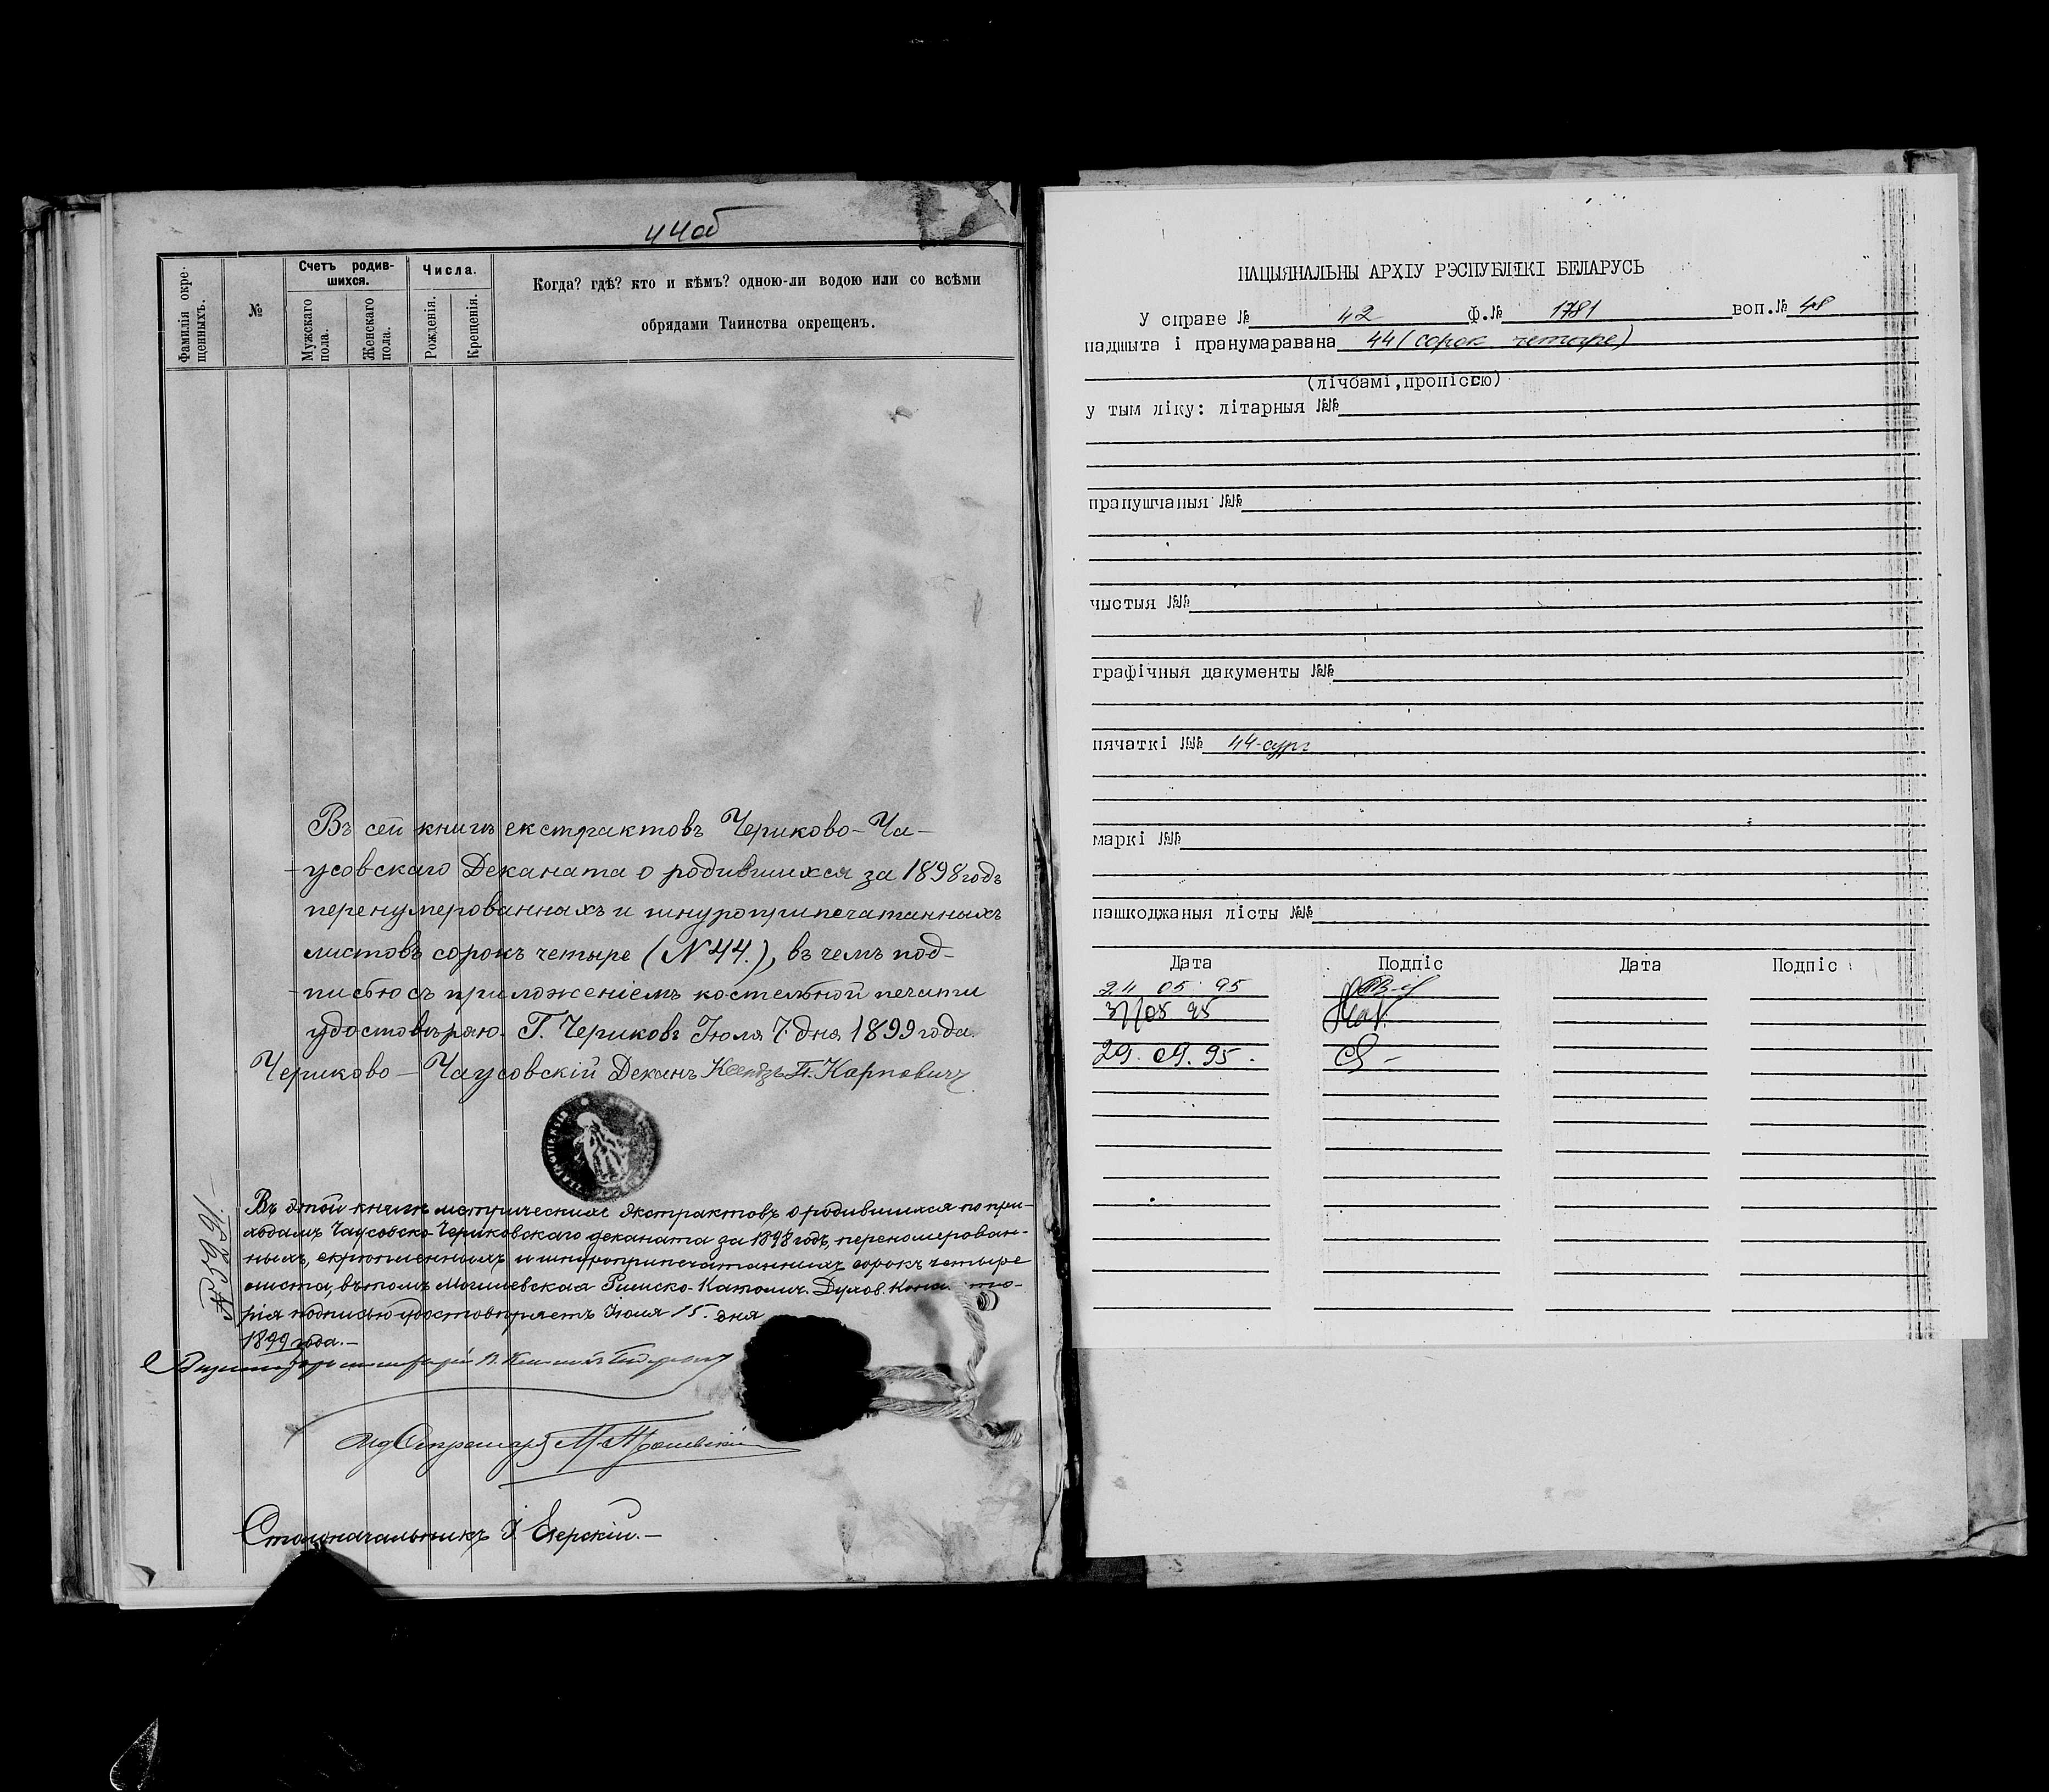 44об
Фамилія окре-
щенныхъ.
№
Счетъ родив-
шихся.
Мужскаго
пола.
Женскаго
пола.
Числа.
Рожденія.
Крещенія.
Когда? гдѣ? кто и кѣмъ? одною-ли водою или со всѣми
обрядами Таинства окрещенъ.
Въ сей книгѣ екстрактовъ Чериково-Ча-
усовскаго Деканата о родившихся за 1898 годъ
перенумерованныхъ и шнуроприпечатанныхъ
листовъ сорокъ четыре (№ 44.), въ чемъ под-
писью съ приложеніемъ костельной печати
удостовѣряю. Г. Чериковъ Іюля 7 дня 1899 года.
Чериково-Чаусовскій Деканъ Ксендзъ П. Карповичъ
Въ этой книгѣ метрическихъ экстрактовъ о родившихся по при-
ходамъ Чаусовско-Чериковскаго деканата за 1898 годъ, переномерован-
ныхъ, скрѣпленныхъ и шнуроприпечатанныхъ сорокъ четыре
листа, въ томъ Могилевская Римско-Католич. Духов. Консисто-
рія подписью удостовѣряетъ Іюля 15. дня
1899 года.-
Столоначальникъ І. Езерскій.-
НАЦЫЯНАЛЬНЫ АРХІУ РЭСПУБЛІКІ БЕЛАРУСЬ
У справе № 42 ф.№ 1781 воп.№ 48
падшыта і пранумаравана 44 (сорок четыре)
(лічбамі,пропіссю)
у тым ліку: літарныя №№
прапушчаныя №№
чыстыя №№
графічныя дакументы №№
пячаткі №№ 44-сург
маркі №№
пашкоджаныя лісты №№
Дата Подпіс Дата Подпіс
24 05 95
31/05 95
29.09.95.